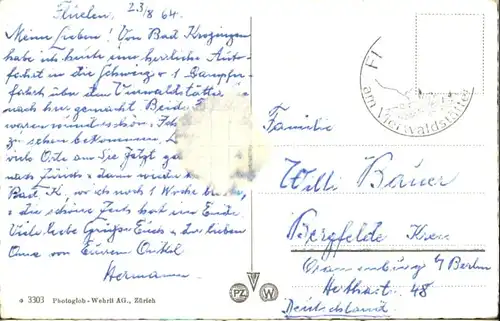 Flüelen, 23/8 64.
Meine Lieben! Von Bad Krozingen
habe ich heute eine herrliche Auto-
fahrt in die Schweiz + 1 Dampfer-
fahrt über den Vierwaldstätter
nach hier gemacht. Beide
waren wunderschön. Ich
zu sehen bekommen.
viele Orte an. Sie Jetzt
nach Zürich + dann wieder
Bad K. wo ich noch 1 Woche
+ die schöne Zeit hat ein Ende.
Viele liebe Grüße Euch + der lieben
Oma von Eurem Onkel
Hermann
Fl
am Vierwaldstätter
Familie
Willi Bauer
Bergfelde Kreis
Oranienburg b/ Berlin
48
Deutschland
3303 Photoglob-Wehrli AG., Zürich
PZ W